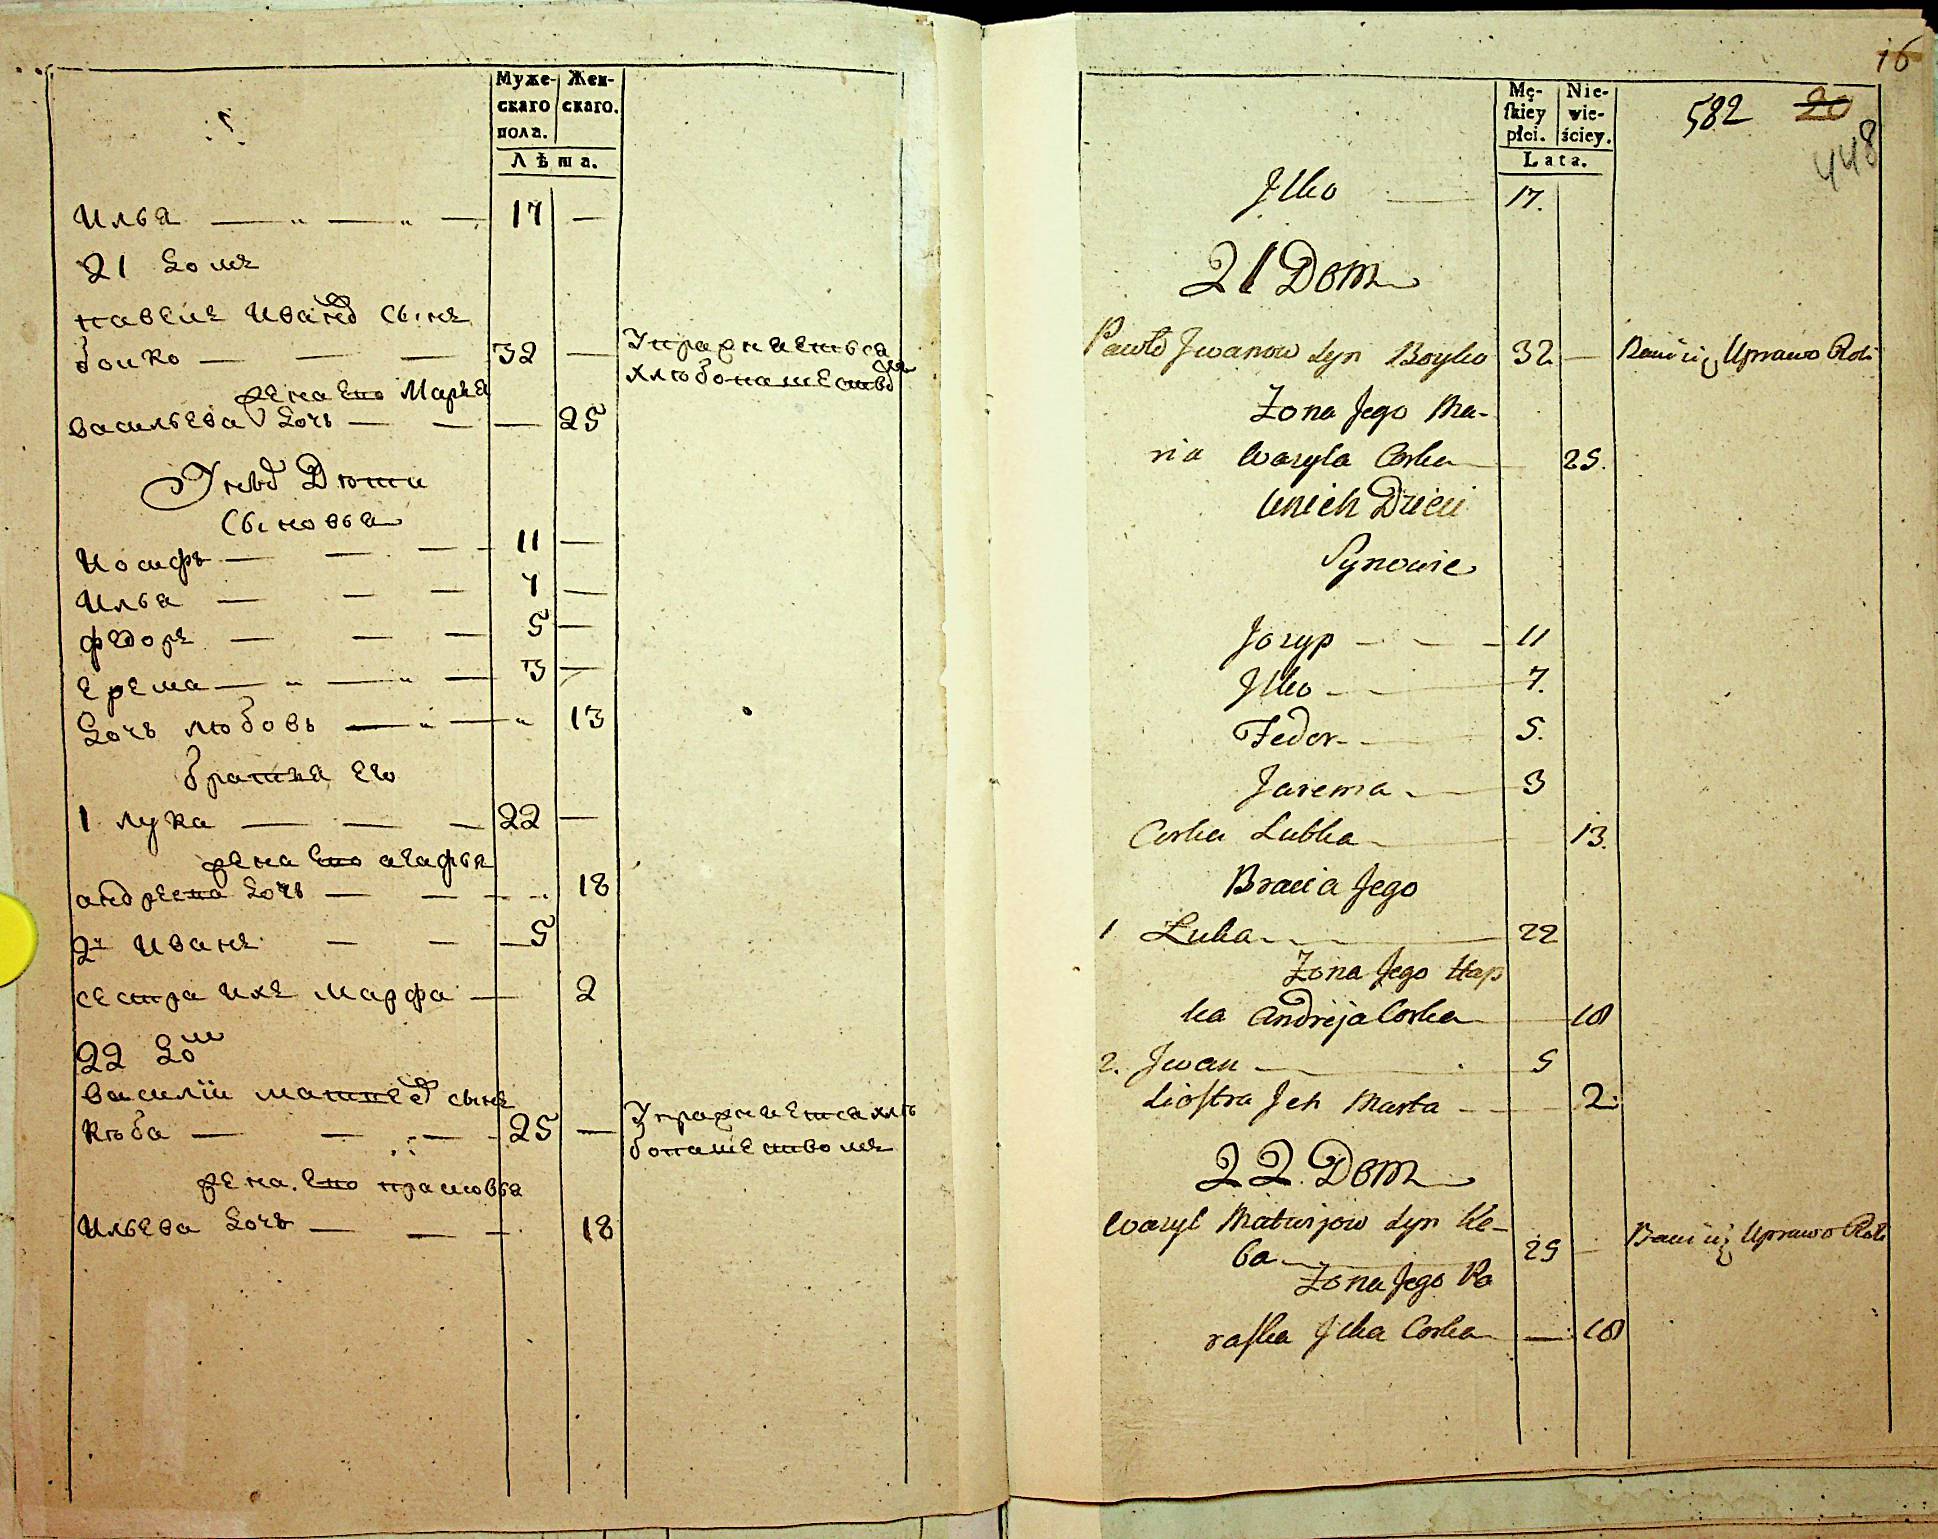 Муже-
скаго
пола.
Жен-
скаго.
Лѣта.
Илья — „ — „ — 17 —
21 домъ
павелъ ивановъ сынъ
бойко — — — 32 —
Упражняеться
хлѣбопашествомъ
жена его Марья
васильева дочь — — — 25
У нихъ Дѣти
сыновья
Иосифъ — — — 11 —
Илья — — — 7 —
федоръ — — — 5 —
Ерема — „ — „ — 3 —
дочь любовь — „ — „ 13
братья его
1 лука — — — 22 —
жена его агафья
андреева дочь — — — 18
2й иванъ — — — 5
сестра ихъ Марфа — 2
22 домъ
василій матвеевъ сынъ
кѣба — — — 25 —
Упражняется хлѣ
бопашествомъ
жена его прасковья
Ильева дочь — — — 18
16
Mę-
skiey
płci.
Nie-
wie-
ściey.
Lata.
582 20
448
Jlko — 17.
21 Dom
Pawło Jwanow Syn Boyko 32 — Bawi się Uprawo Roli
Żona Jego Ma-
ria Wasyla Corka — 25.
Unich Dzieci
Synowie
Jozyp — — — 11
Jlko — — 7.
Fedor — — 5.
Jarema — — 3
Corka Lubka — 13.
Bracia Jego
1 Luka — — 22
Żona Jego Hap
ka Andreja Corka — 18
2. Jwan — 5
Siostra Jch Marta — — 2.
22. Dom
Wasyl Matwijow Syn Ke-
ba — 25 — Bawi się Uprawo Roli
Żona Jego Pa
raska Jlka Corka — 18